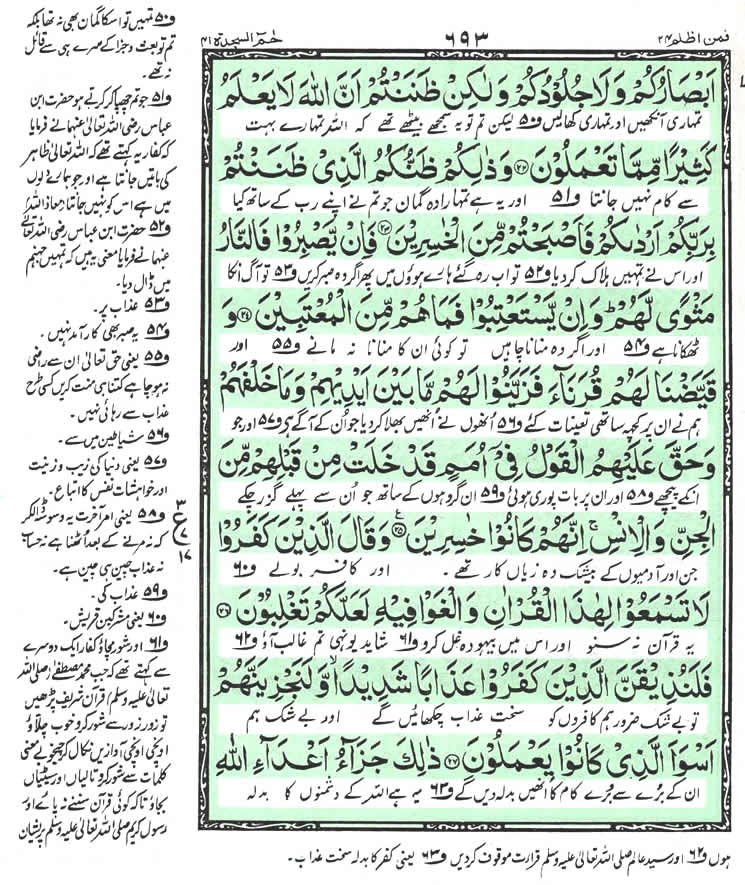 فمن اظلم ۲۴
۶۹۳
حٰمٓ السجدۃ ۴۱
اَبْصَارُكُمْ وَلَا جُلُوْدُكُمْ وَلٰكِنْ ظَنَنْتُمْ اَنَّ اللّٰهَ لَا يَعْلَمُ
تمہاری آنکھیں اور تمہاری کھالیں ف۵۰ لیکن تم تو یہ سمجھے بیٹھے تھے کہ اللہ تمہارے بہت
كَثِيْرًا مِّمَّا تَعْمَلُوْنَ ۲۲ وَذٰلِكُمْ ظَنُّكُمُ الَّذِيْ ظَنَنْتُمْ
سے کام نہیں جانتا ف۵۱ اور یہ ہے تمہارا وہ گمان جو تم نے اپنے رب کے ساتھ کیا
بِرَبِّكُمْ اَرْدٰىكُمْ فَاَصْبَحْتُمْ مِّنَ الْخٰسِرِيْنَ ۲۳ فَاِنْ يَّصْبِرُوْا فَالنَّارُ
اور اس نے تمہیں ہلاک کردیا ف۵۲ تو اب رہ گئے ہارے ہوؤں میں پھر اگر وہ صبر کریں ف۵۳ تو آگ انکا
مَثْوًى لَّهُمْ ۚ وَاِنْ يَّسْتَعْتِبُوْا فَمَا هُمْ مِّنَ الْمُعْتَبِيْنَ ۲۴ وَ
ٹھکانا ہے ف۵۴ اور اگر وہ منانا چاہیں تو کوئی ان کا منانا نہ مانے ف۵۵ اور
قَيَّضْنَا لَهُمْ قُرَنَآءَ فَزَيَّنُوْا لَهُمْ مَّا بَيْنَ اَيْدِيْهِمْ وَمَا خَلْفَهُمْ
ہم نے ان پر کچھ ساتھی تعینات کئے ف۵۶ اُنھوں نے اُنھیں بھلا کر دیا جو اُن کے آگے ہے ف۵۷ اور جو
وَحَقَّ عَلَيْهِمُ الْقَوْلُ فِيْٓ اُمَمٍ قَدْ خَلَتْ مِنْ قَبْلِهِمْ مِّنَ
انکے پیچھے ف۵۸ اور ان پر بات پوری ہوئی ف۵۹ ان گروہوں کے ساتھ جو اُن سے پہلے گزر چکے
الْجِنِّ وَالْاِنْسِ ۚ اِنَّهُمْ كَانُوْا خٰسِرِيْنَ ۲۵ وَقَالَ الَّذِيْنَ كَفَرُوْا
جن اور آدمیوں کے بیشک وہ زیاں کار تھے ۔ اور کافر بولے ف۶۰
لَا تَسْمَعُوْا لِهٰذَا الْقُرْاٰنِ وَالْغَوْا فِيْهِ لَعَلَّكُمْ تَغْلِبُوْنَ ۲۶
یہ قرآن نہ سنو اور اس میں بیہودہ غل کرو ف۶۱ شاید یونہی تم غالب آؤ ف۶۲
فَلَنُذِيْقَنَّ الَّذِيْنَ كَفَرُوْا عَذَابًا شَدِيْدًا ۙ وَّلَنَجْزِيَنَّهُمْ
تو بے شک ضرور ہم کافروں کو سخت عذاب چکھائیں گے اور بے شک ہم
اَسْوَاَ الَّذِيْ كَانُوْا يَعْمَلُوْنَ ۲۷ ذٰلِكَ جَزَآءُ اَعْدَآءِ اللّٰهِ
ان کے بُرے سے بُرے کام کا انھیں بدلہ دیں گے ف۶۳ یہ ہے اللہ کے دشمنوں کا بدلہ
ف۵۰ تمہیں تو اسکا گمان بھی نہ تھا بلکہ
تم تو بعث و جزا کے سرے ہی سے قائل
نہ تھے۔
ف۵۱ جو تم چھپا کر کرتے ہو حضرت ابن
عباس رضی اللہ تعالیٰ عنہما نے فرمایا
کہ کفار یہ کہتے تھے کہ اللہ تعالیٰ ظاہر
کی باتیں جانتا ہے اور جو ہمارے دلوں
میں ہے اس کو نہیں جانتا معاذ اللہ
ف۵۲ حضرت ابن عباس رضی اللہ تعالیٰ
عنہما نے فرمایا معنی یہ ہیں کہ تمہیں جہنم
میں ڈال دیا۔
ف۵۳ عذاب پر۔
ف۵۴ یہ صبر بھی کارآمد نہیں۔
ف۵۵ یعنی حق تعالیٰ ان سے راضی
نہ ہو چاہے کتنا ہی منت کریں کسی طرح
عذاب سے رہائی نہیں۔
ف۵۶ شیاطین میں سے۔
ف۵۷ یعنی دنیا کی زیب و زینت
اور خواہشات نفس کا اتباع۔
ف۵۸ یعنی امر آخرت یہ وسوسہ ڈالکر
کہ نہ مرنے کے بعد اٹھنا ہے نہ حساب
نہ عذاب چین ہی چین ہے۔
ف۵۹ عذاب کی۔
ف۶۰ یعنی مشرکین قریش۔
ف۶۱ اور شور مچاؤ کفار ایک دوسرے
سے کہتے تھے کہ جب محمد مصطفےٰ (صلی اللہ
تعالیٰ علیہ وسلم) قرآن شریف پڑھیں
تو زور زور سے شور کرو خوب چلاؤ
اونچی اونچی آوازیں نکال کر چیخو بے معنی
کلمات سے شور کرو تالیاں اور سیٹیاں
بجاؤ تاکہ کوئی قرآن سننے نہ پائے اور
رسول کریم صلی اللہ تعالیٰ علیہ وسلم پریشان
۳
ع
۷
۱۷
ہوں ف۶۲ اور سید عالم صلی اللہ تعالیٰ علیہ وسلم قراءت موقوف کردیں ف۶۳ یعنی کفر کا بدلہ سخت عذاب۔